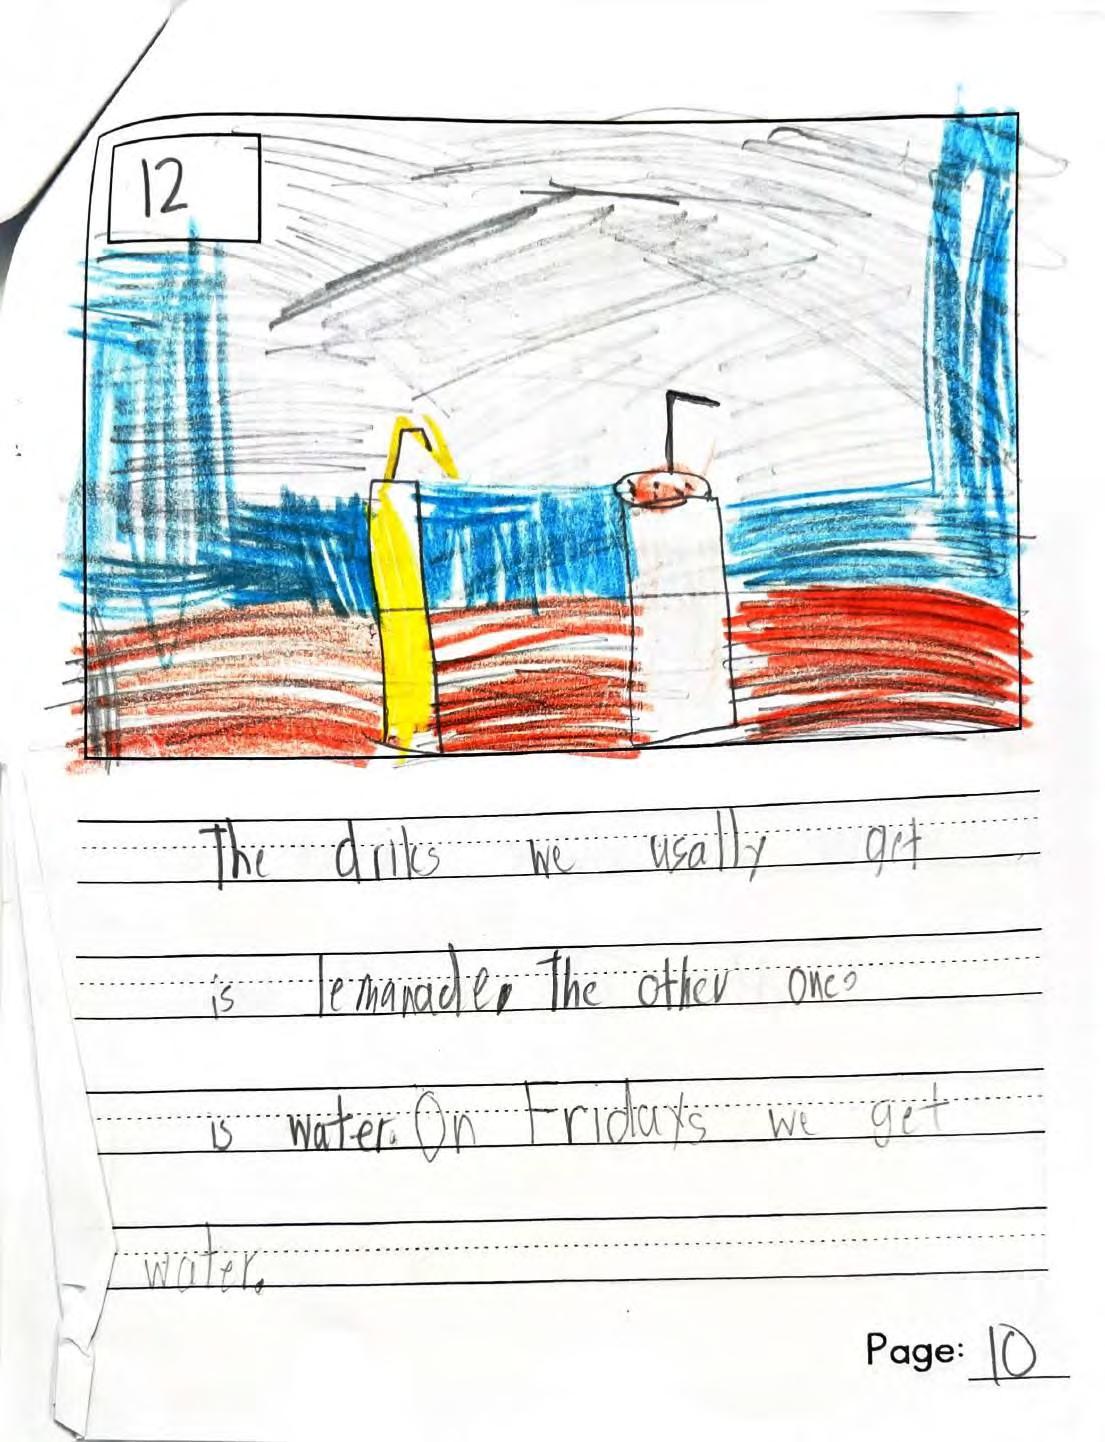 12
The driks we usally get
is lemanade. The other one
is water. On Fridays we get
water.
Page: 10